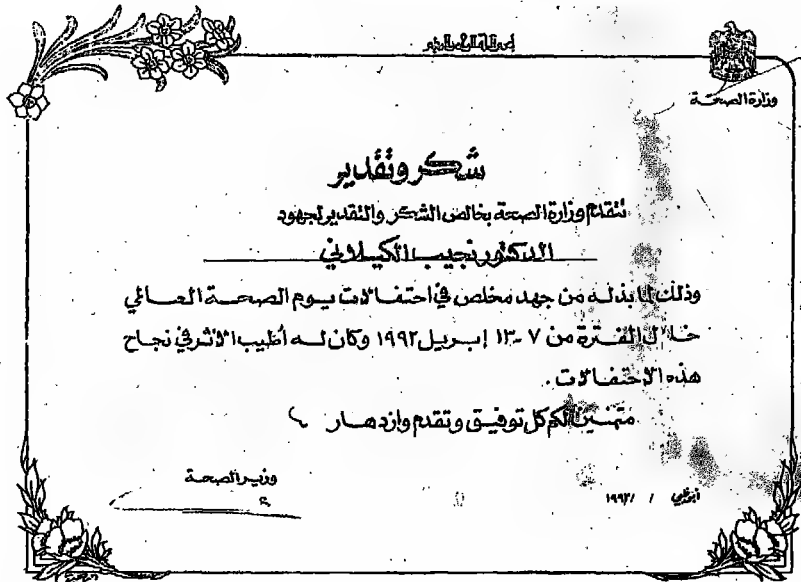 بسم الله الرحمن الرحيم
وزارة الصحة
شكر وتقدير
تتقدم وزارة الصحة بخالص الشكر والتقدير لجهود
الدكتور نجيب الكيلاني
وذلك لما بذله من جهد مخلص في احتفالات يوم الصحة العالمي
خلال الفترة من ٧-١٣ إبريل ١٩٩٢ وكان له أطيب الأثر في نجاح
هذه الاحتفالات.
متمنين لكم كل توفيق وتقدم وازدهار
وزير الصحة
أبوظبي / / ١٩٩٢